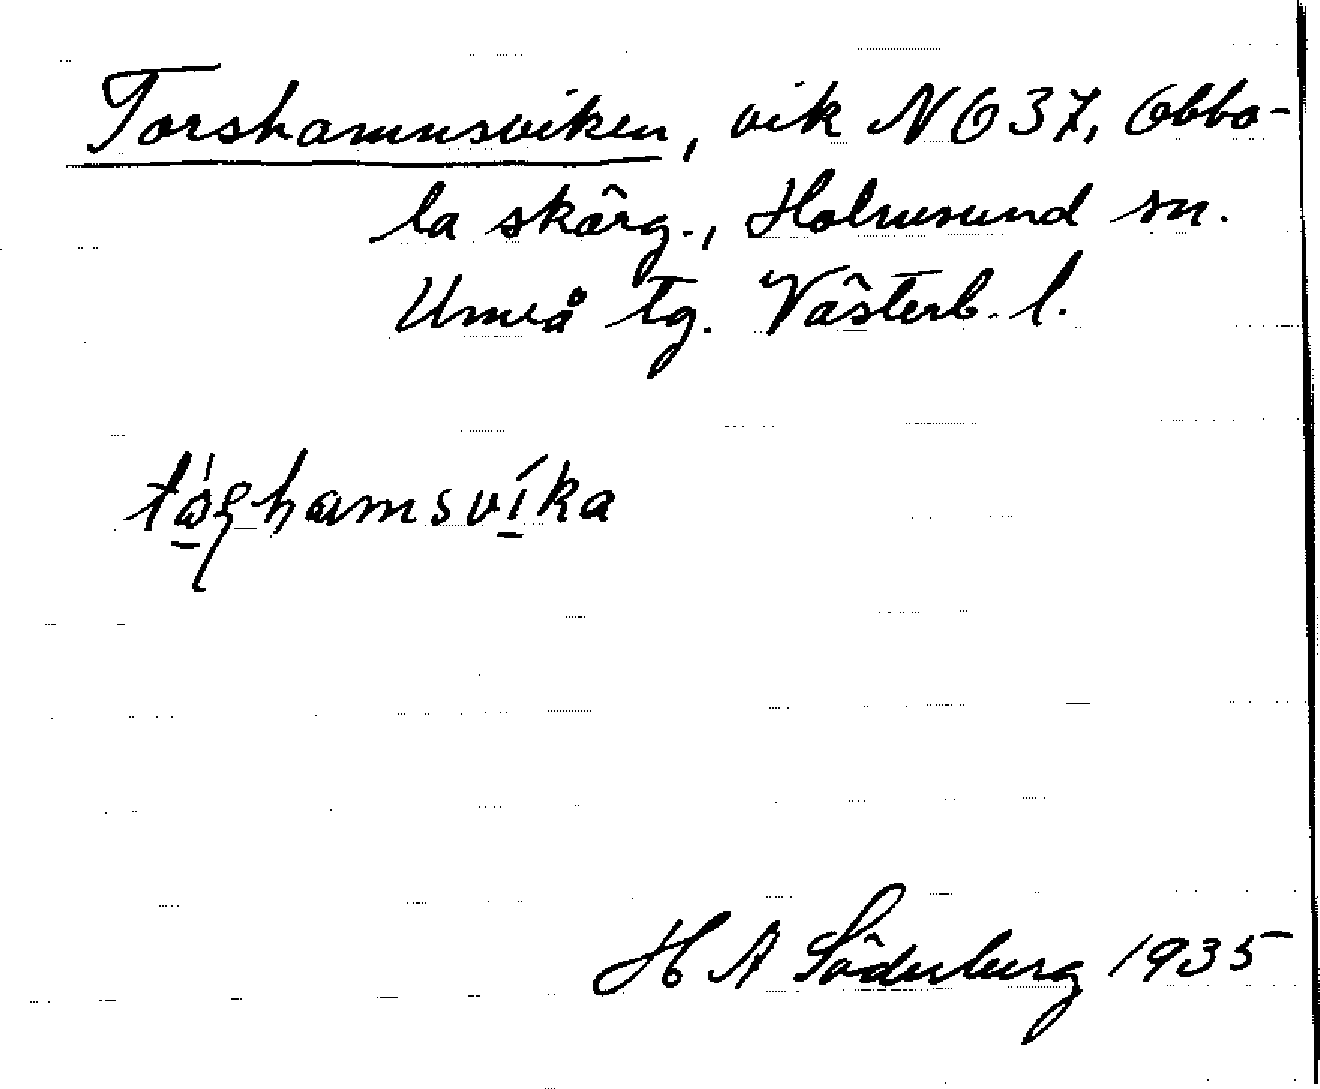 Torshamnsviken, vik NO 37, Obbo-
la skärg., Holmsund sn.
Umeå tg. Västerb. l.
H A Söderberg 1935